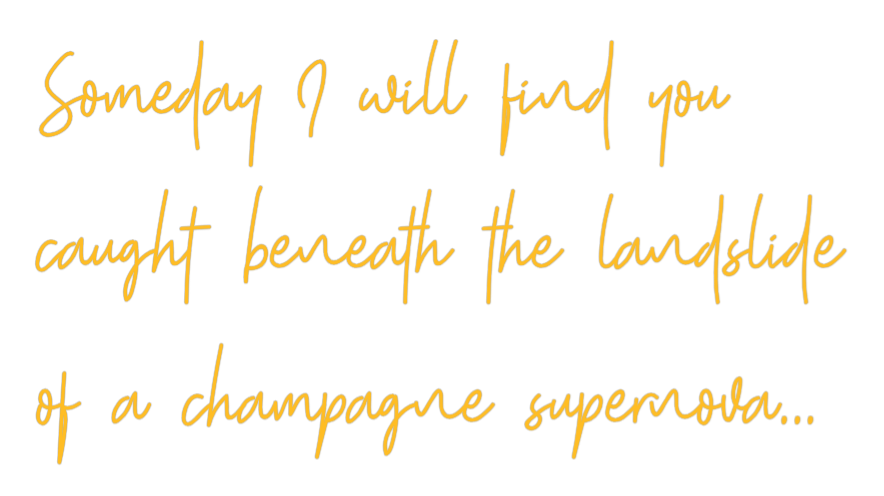 Someday I will find you
caught beneath the landslide
of a champagne supernova...